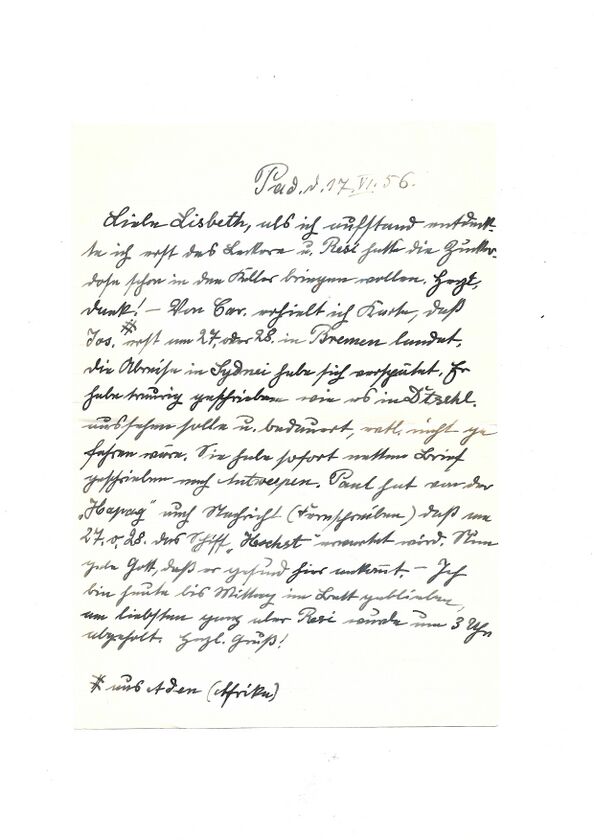 Pad. d. 17. VI. 56.
Liebe Lisbeth, als ich aufstand entdeck-
te ich erst das Leckere u. Resi hatte die Zucker-
dose schon in den Keller bringen wollen. Herzl.
Dank! – Von Car. erhielt ich Karte, daß
Jos. * erst am 27. oder 28. in Bremen landet,
die Abreise in Sydnei habe sich verspätet. Er
habe traurig geschrieben wie es in Dtschl.
aussehen solle u. bedauert, evtl. nicht ge
fahren wäre. Sie habe sofort netten Brief
geschrieben nach Antwerpen. Paul hat von der
„Hapag" auch Nachricht (Fernschreiben) daß am
27. o. 28. das Schiff „Hoechst" erwartet wird. Nun
gebe Gott, daß er gesund hier ankommt. – Ich
bin heute bis Mittag im Bett geblieben,
am liebsten ganz aber Resi wurde um 3 Uhr
abgeholt. Herzl. Gruß!
* aus Aden (Afrika)